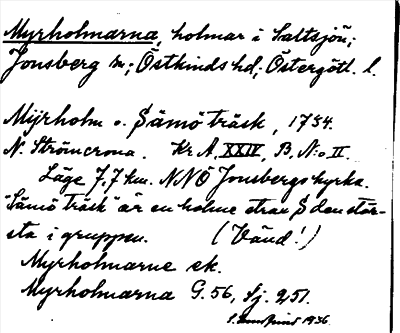 Myrholmarna, holmar i Saltsjön;
Jonsberg sn; Östkinds hd; Östergötl. l.
Mijrholm o. Sämö träsk, 1784.
N. Strömcrona. Kr A, XXIV, B, N:o II.
Läge 7,7 km. NNÖ Jonsbergs kyrka.
"Sämö träsk" är en holme strax S den stör-
sta i gruppen. (Vänd!)
Myrholmarne ek.
Myrholmarna G. 56, Sj. 251.
1936.